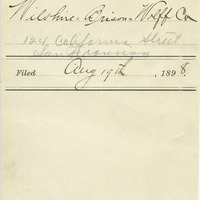 Wilshire. Brison. Wolff Co
124 California Street
San Francisco
Filed Aug 19th, 1898.